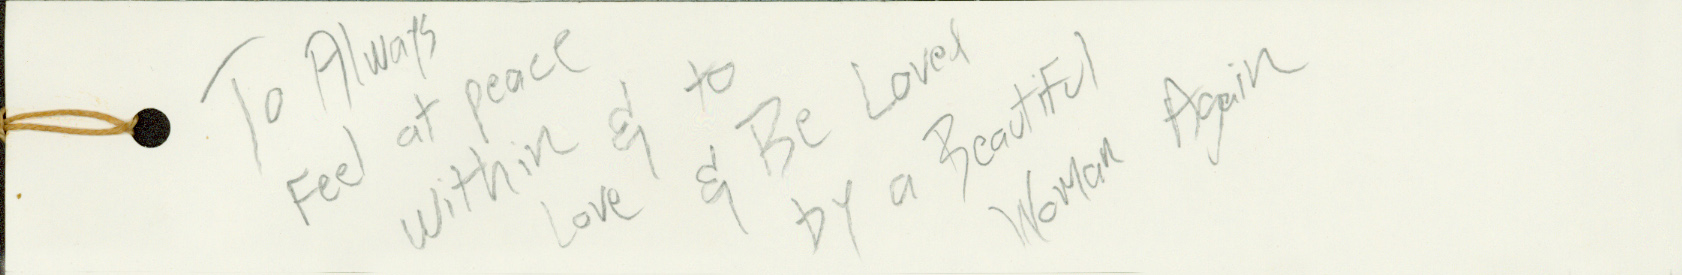 To Always
Feel at peace
within & to
Love & Be Loved
by a Beautiful
Woman Again